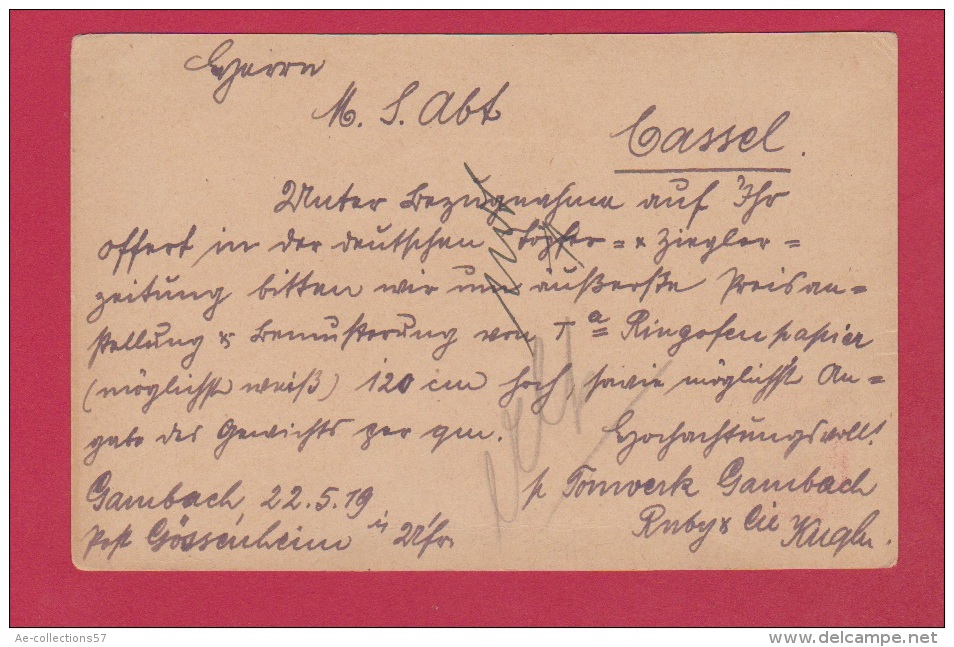 Herrn
M. S. Abt
Cassel.
Unter Bezugnahme auf Ihr
offert in der deutschen Töpfer= & Ziegler=
zeitung bitten wir um äußerste Preisan=
stellung & Bemusterung von Ia Ringofenpapier
(möglichst weiß) 120 cm hoch, sowie möglichst An=
gabe des Gewichts per qm. Hochachtungsvoll!
Gambach, 22.5.19 p Tonwerk Gambach
Post Gössenheim Ruby & Cie Kugler.
Ae-collections57
www.delcampe.net